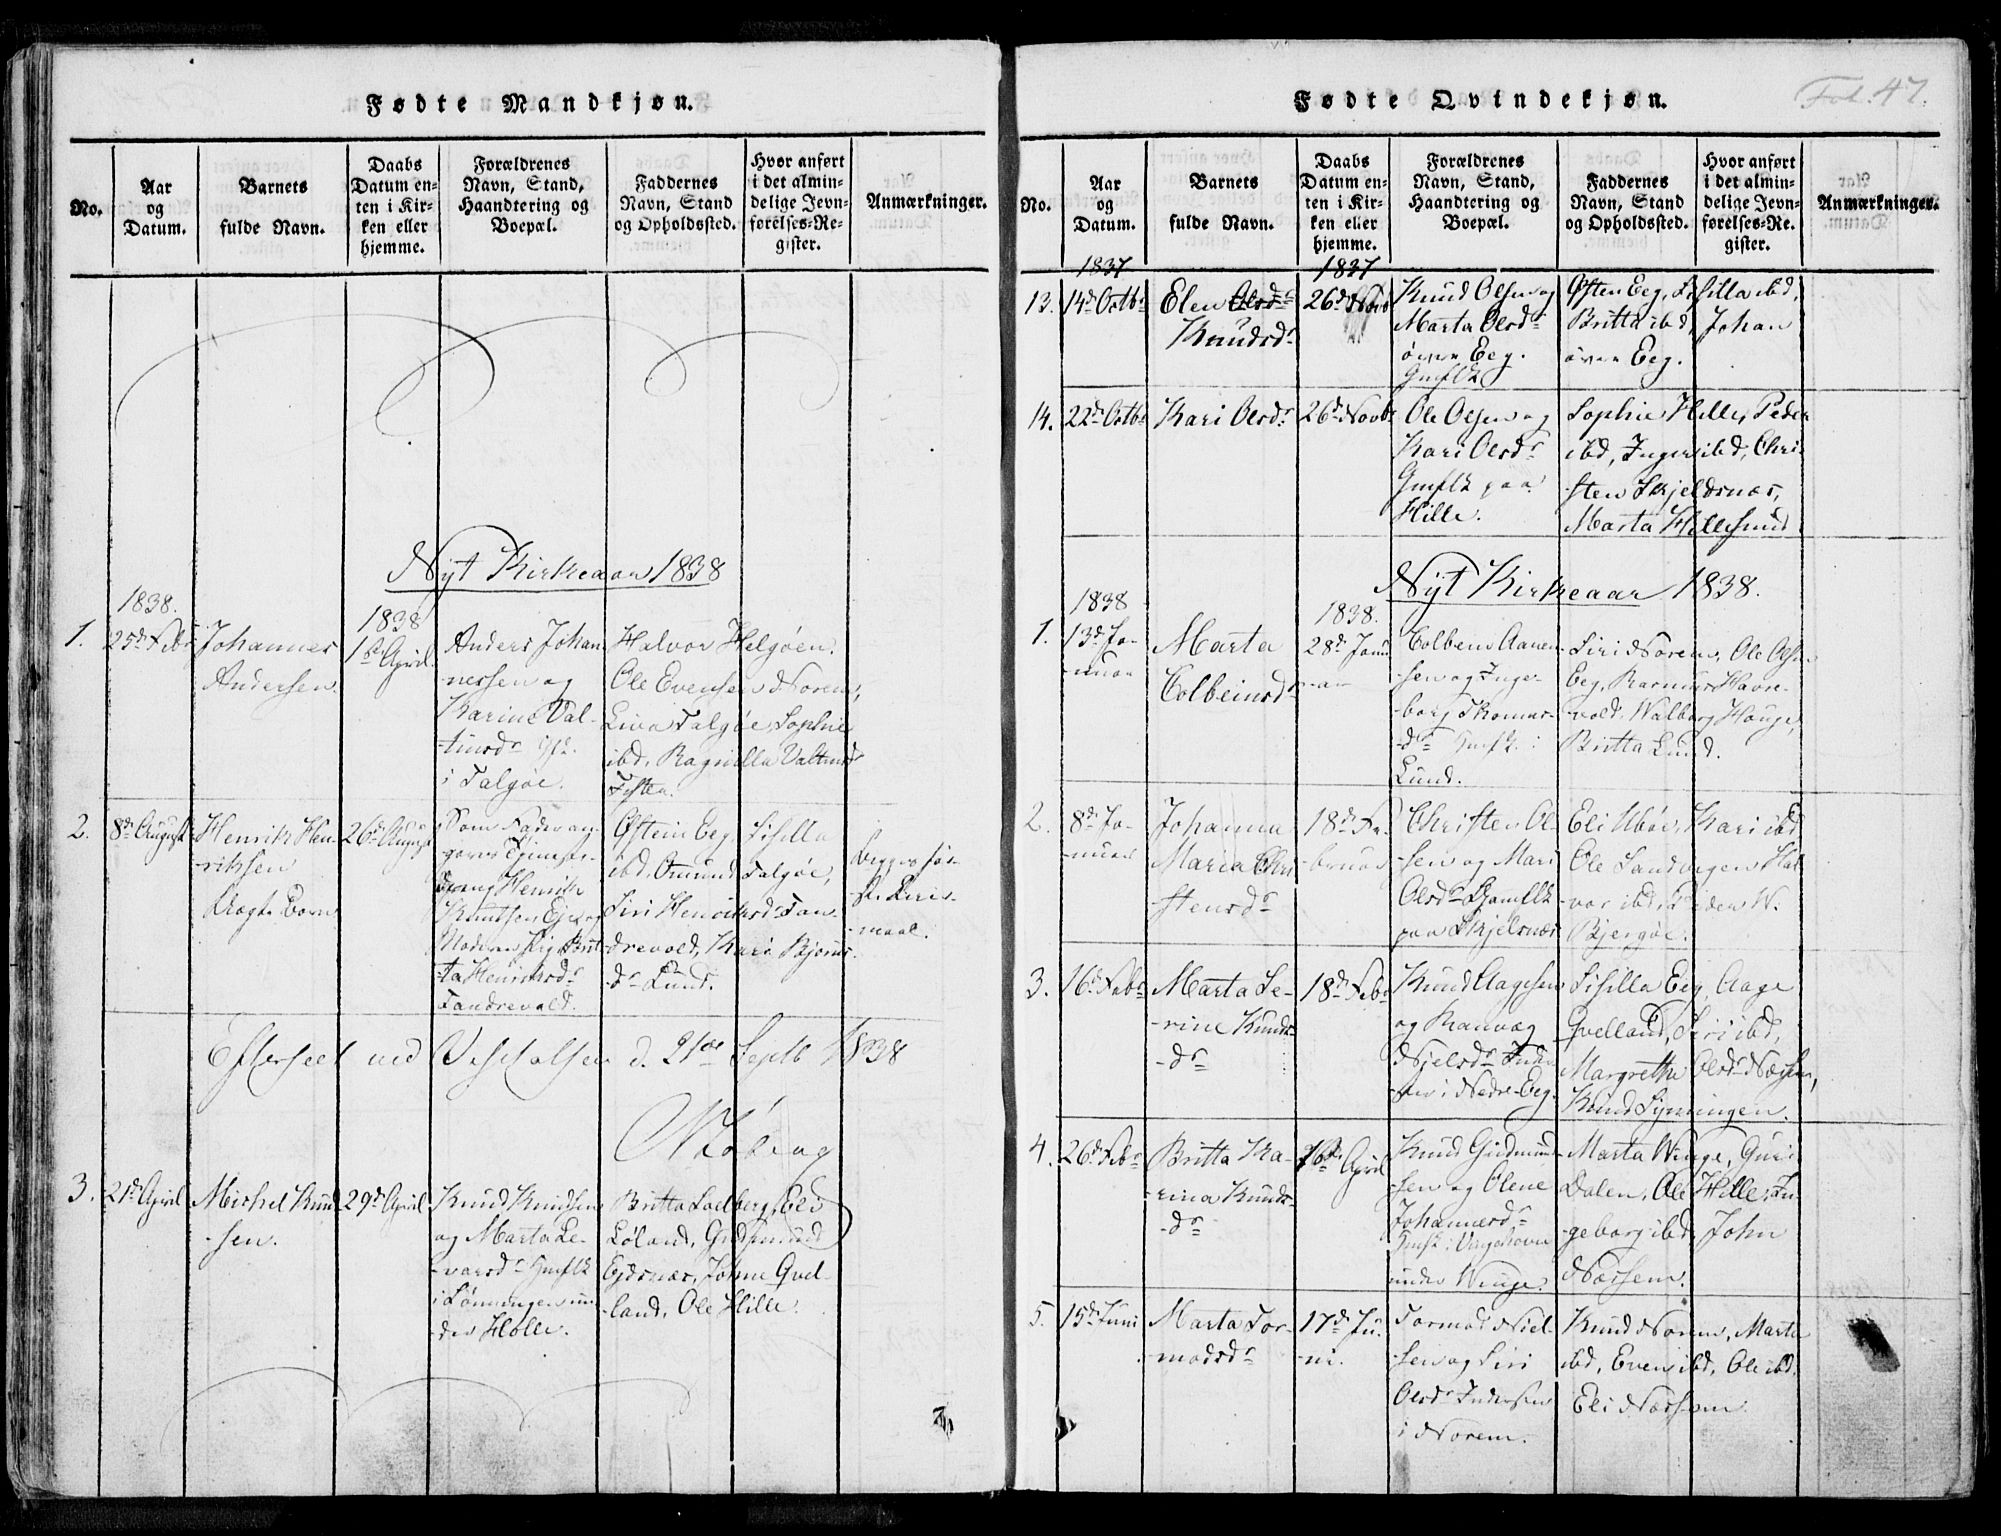 Fødte Mandkjøn.
No.
Aar
og
Datum.
Barnets
fulde Navn.
Daabs
Datum en-
ten i Kir-
ken eller
hjemme.
Forældrenes
Navn, Stand,
Haandtering og
Boepæl.
Faddernes
Navn, Stand
og Opholdssted.
Hvor anført
i det almin-
delige Jevn-
førelses-Re-
gister.
Anmærkninger.
Nyt Kirkeaar 1838
1.
1838.
25de Febr
Johannes
Andersen.
1838
1ste April.
Anders Johan
nessen og
Karine Val-
-tinsdr
i Talgøe.
Halvor Helgøen.
Ole Evensen Norem,
Liva Talgøe, Sophie
ibd, Ragnilla Valtinsdr
Festen.
2.
8de August
Henrik Hen-
riksen
Uægte Barn
26de August
Som Fader an-
gaves
Henrik
Knudsen Eje og
Moderen Pig. Brit-
ta Henriksdr
Tandrevold.
Østein Eeg, Sisilla
ibd, Omund Talgøe,
Siri Henriksdr Tan-
drevold, Kari Bjørns-
-dr Lund.
begges før-
ste Leier-
maal.
Efterseet ved d. 21de Septb 1838
3.
21de April
Michel Knud
-sen.
29de April
Knud Knudsen
og Marta Le-
-varsdr Huusflk
i Lønningen un-
der Holle.
Britta Ladberg, Eli
Løland, Gudmund
Eidsnæs, Johne Qvel-
-land, Ole Hille.
Fødte Qvindekjøn.
Fol. 47.
No.
Aar
og
Datum.
Barnets
fulde Navn.
Daabs
Datum en-
ten i Kir-
ken eller
hjemme.
Forældrenes
Navn, Stand,
Haandtering og
Boepæl.
Faddernes
Navn, Stand
og Opholdssted.
Hvor anført
i det almin-
delige Jevn-
førelses-Re-
gister.
Anmærkninger.
13.
1837
14de Octbr
Elen Olsdr
Knudsdr
1837
26de Novb
Knud Olsen og
Marta Olsdr
øvre Eeg.
Huusflk
Østen Eeg, Sisilla ibd,
Britta ibd, Johan
øvre Eeg.
14.
22de Octbr
Kari Olsdr
26de Novbr
Ole Olsen og
Kari Olsdr
Huusflk paa
Hille.
Sophie Hille, Peder
ibd, Inger ibd, Chri-
sten Skjeldsnæs,
Marta Hillesund
Nyt Kirkeaar 1838.
1.
1838
13de Ja-
-nuar
Marta
Colbeinsdr
1838.
28de Janu
-ar
Colben Aanen-
-sen og Inge-
-borg Thomas-
-dr Huusflk i
Lund.
Siri Norem, Ole Olsen
Eeg, Rasmus Havre-
-vold, Walborg Houge,
Britta Lund.
2.
8de Ja-
-nuar
Johanna
Maria Chri
-stensdr
18de Fe-
bruar
Christen Ol-
-sen og Mari
Olsdr
paa Skjelsnæs
Eli Ubøe, Kari ibd
Ole Sandvigen Hal-
-vor ibd,
Bjergøe.
3.
16de Febr
Marta Se-
-rine Knuds-
-dr
18de Febr
Knud Aagesen
og Ranvæg
Njelsdr Inder-
ster i Nedre-Eeg.
Sisilla Eeg, Aage
Qvelland, Siri ibd,
Margrethe Olsdr Næssem,
Knud Lynningen.
4.
26de Febr
Britta Ka-
-rina Knuds-
-dr
16de April
Knud Gudmund
-sen og Olene
Johannesdr
Huusflk i
under Winge.
Marta Winge, Guri
Dalen, Ole Hille, In-
-geborg ibd, John
Næssem.
5.
15de Juni
Marta Tor-
-modsdr
17de Ju-
-ni.
Tormod Niel-
-sen og Siri
Olsdr Indersten
i Norem.
Knud Norem, Marta
ibd, Even ibd, Ole ibd.
Eli Næssem.